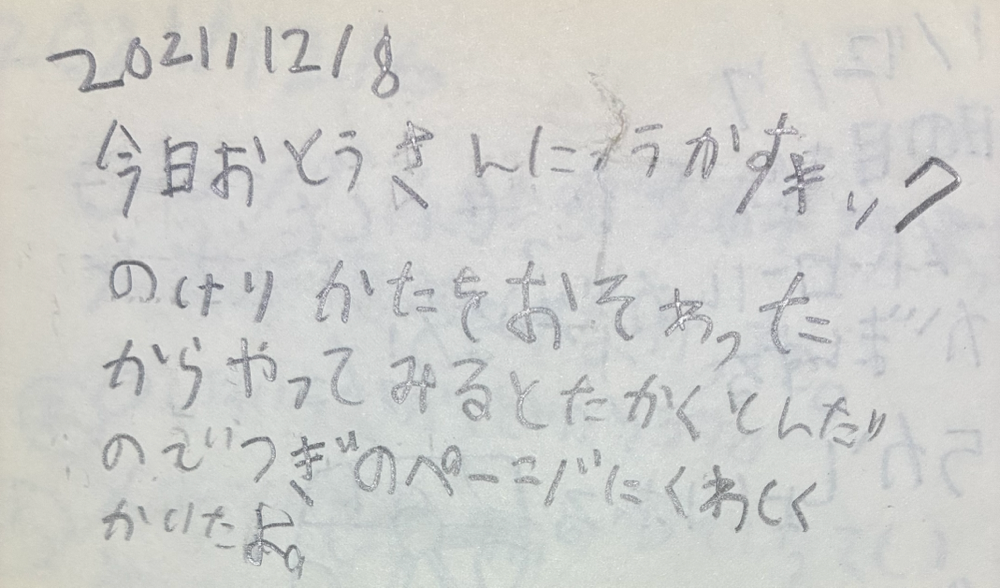 2021 12/8
今日おとうさんにうかすキック
のけりかたをおそわった
からやってみるとたかくとんだ
のでつぎのページにくわしく
かいたよ。